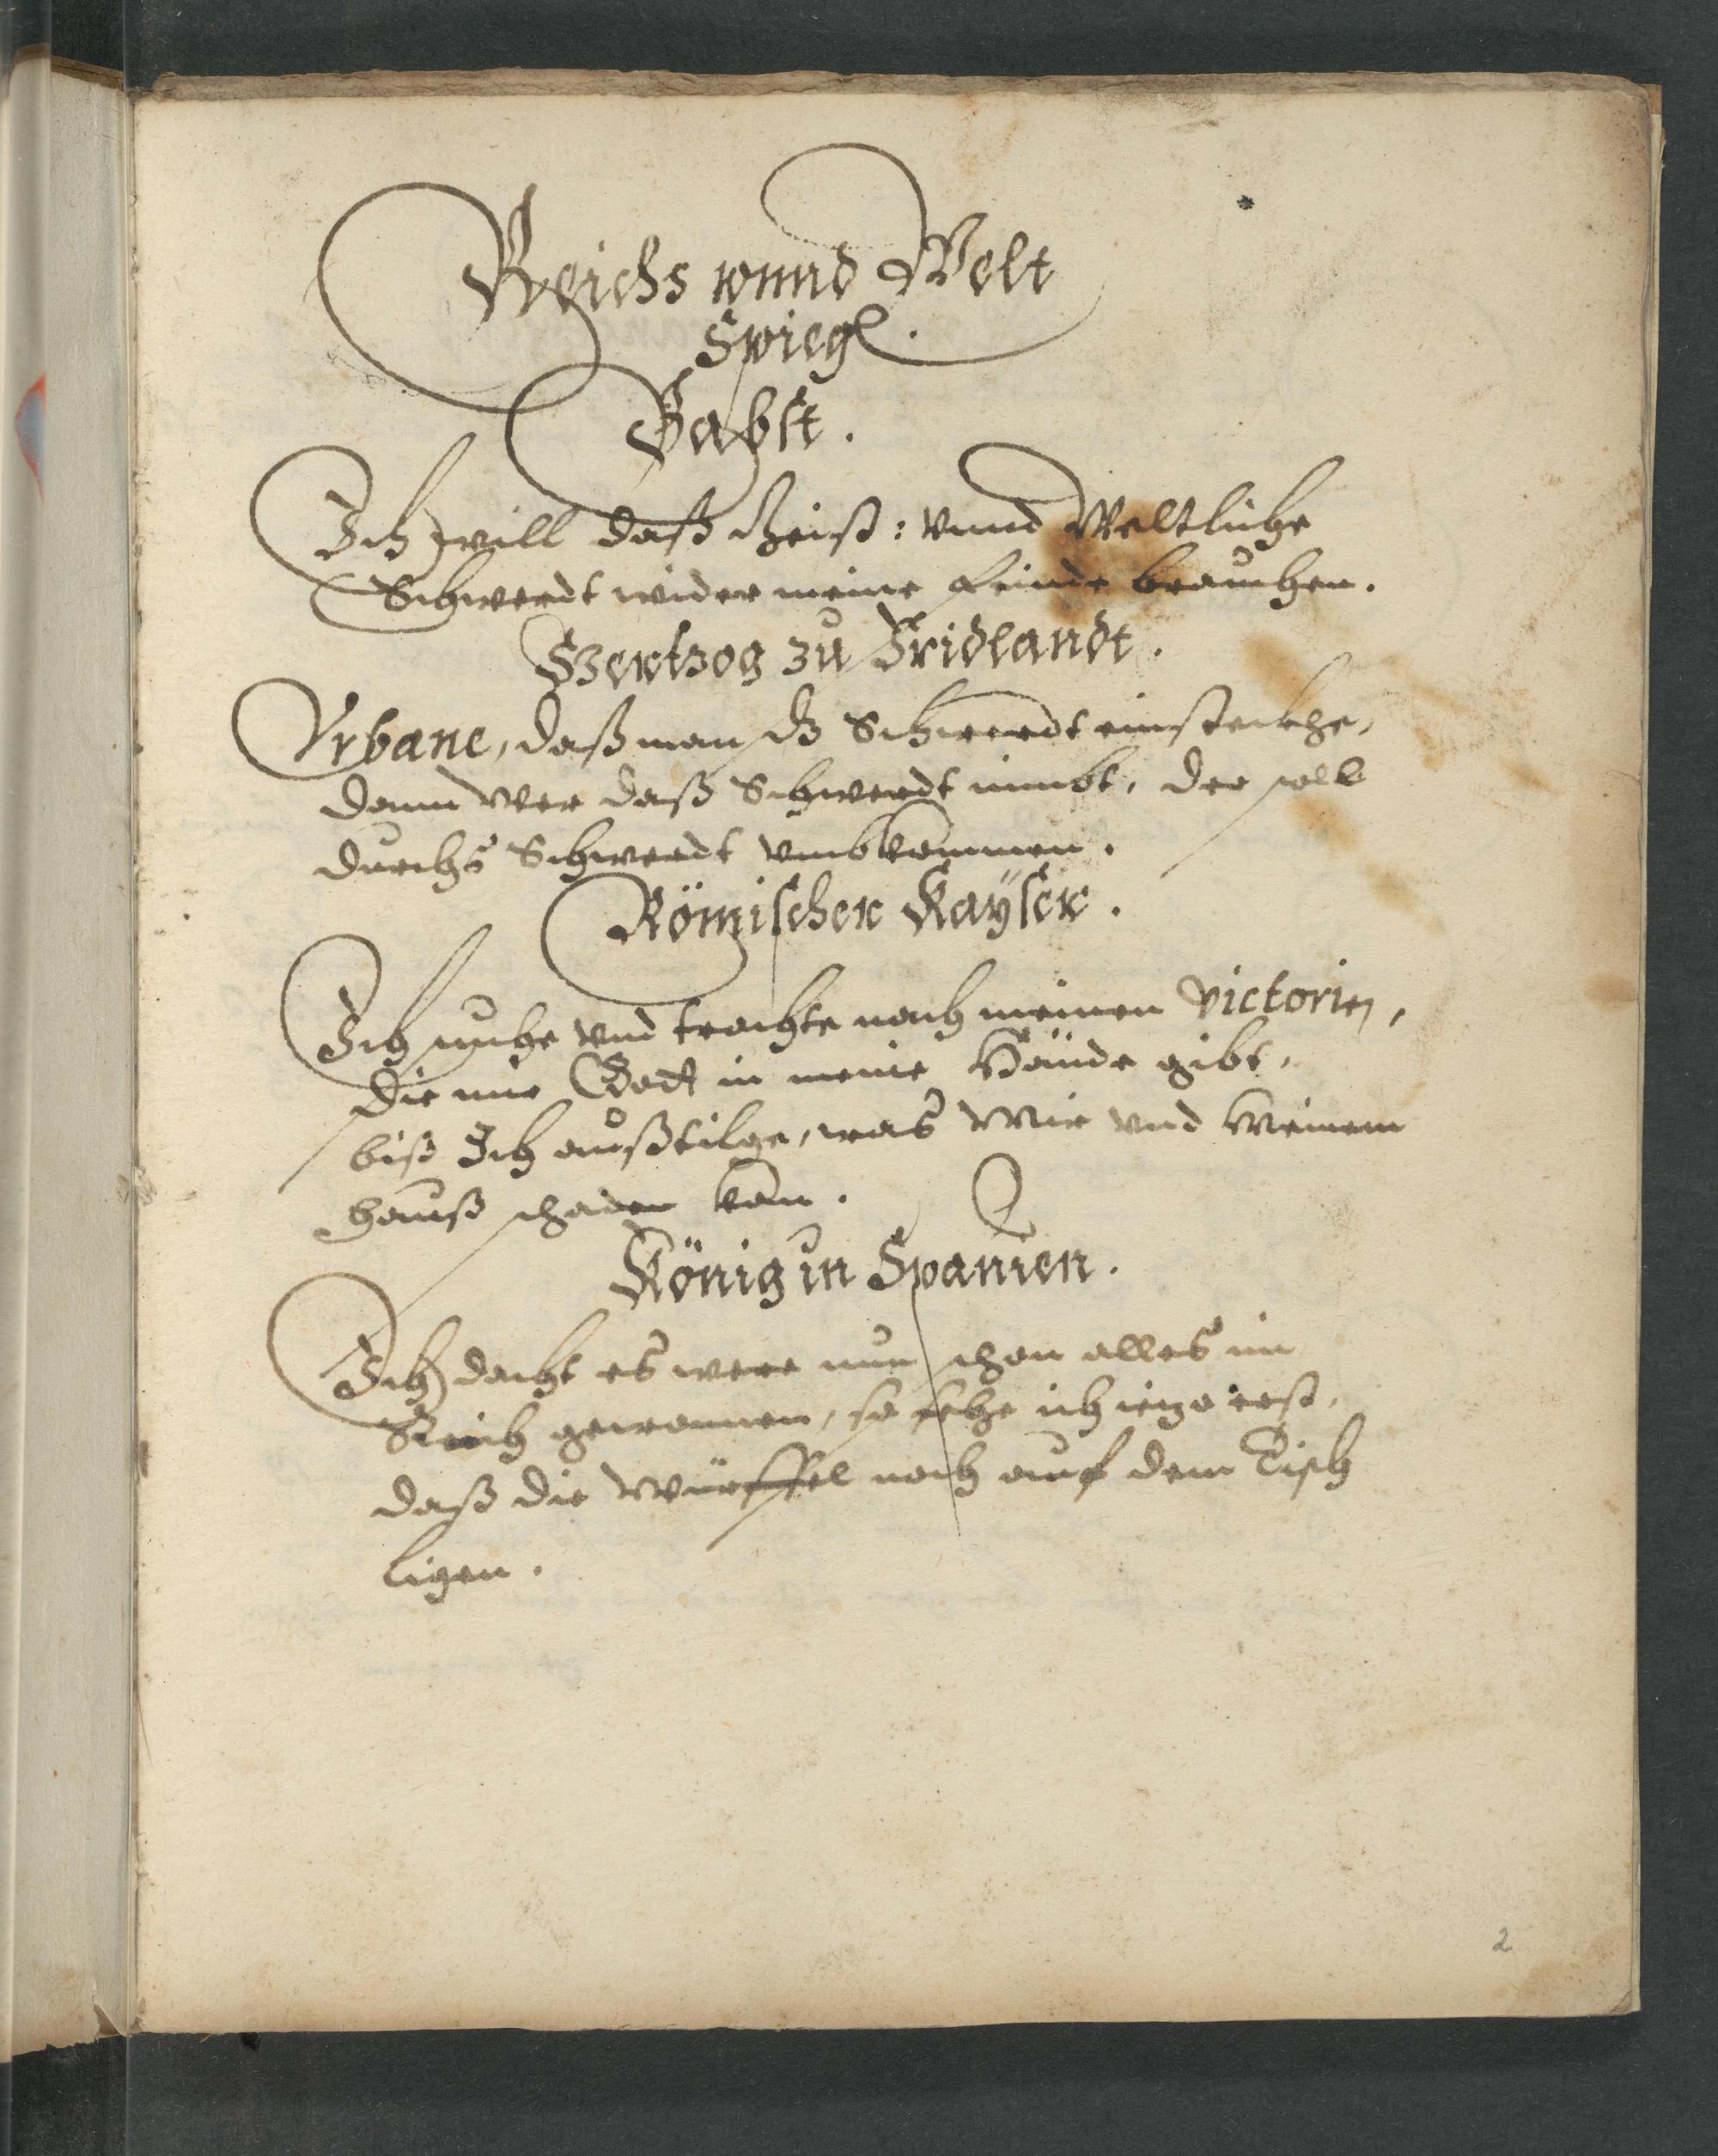 Reichs vnnd Welt
Spiegl.
Pabst.
Ich will daß Geist: vnnd Weltliche
Schwerdt wider meine Feinde brauchen.
Hertzog zu Fridlandt.
Vrbane, daß man dz Schwerdt einsteckhe,
dann wer daß Schwerdt nimbt, der soll
durchs Schwerdt vmbkommen.
Römischer Kayser.
Ich suche vnd trachte nach meinen victorien,
die mir Gott in meine Hände gibt,
biß Ich außtilge, was Mir vnd Meinem
Hauß schaden kan.
König in Spanien.
Ich dacht es were nun schon alles im
Reich gewonnen, so sehe ich iezo erst,
daß die Würffel noch auf dem Tisch
ligen.
2